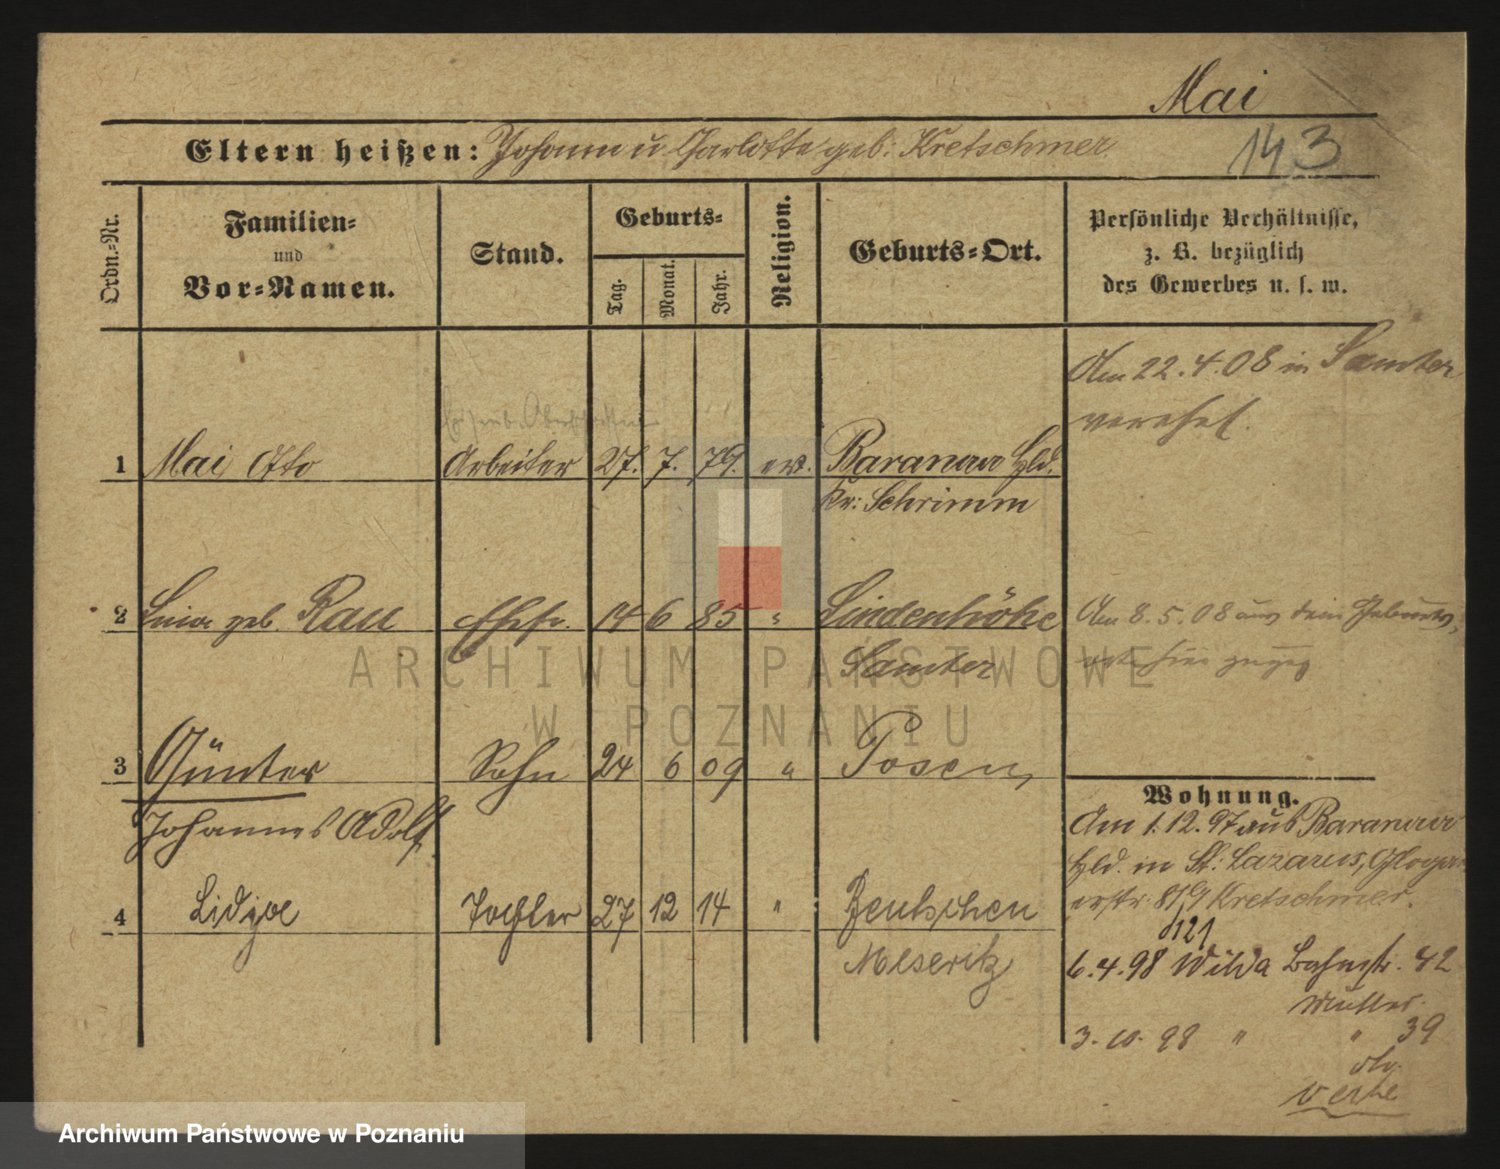 Mai
143
Eltern heißen: Johann u. Charlotte geb: Kretschmer
Ordn.=Nr.
Familien=
und
Vor=Namen.
Stand.
Geburts=
Tag.
Monat.
Jahr.
Religion.
Geburts=Ort.
Persönliche Verhältnisse,
z. B. bezüglich
des Gewerbes u. s. w.
Am 22.4.08 in Samter
verehel.
1 Mai Otto Arbeiter 27. 7. 79. ev. Baranowo Hld.
Kr: Schrimm
2 geb. Rau Ehefr. 14 6 85 " Lindenhöhe
Samter
Am 8.5.08 aus dem Geburts
orte hier zugez
3 Günter Sohn 24 6 09 " Posen
Johannes Adolf.
4 Lidya Tochter 27 12 14 " Bentschen
Meseritz
Wohnung.
Am 1.12.97 aus Baranowo
Hld. in St: Lazarus, Glogau
erstr: 81/9 Kretschmer.
6.4.98 Wilda Bahnstr. 42
Mutter.
3.10.98 " " 39
ARCHIWUM PAŃSTWOWE
W POZNANIU
Archiwum Państwowe w Poznaniu